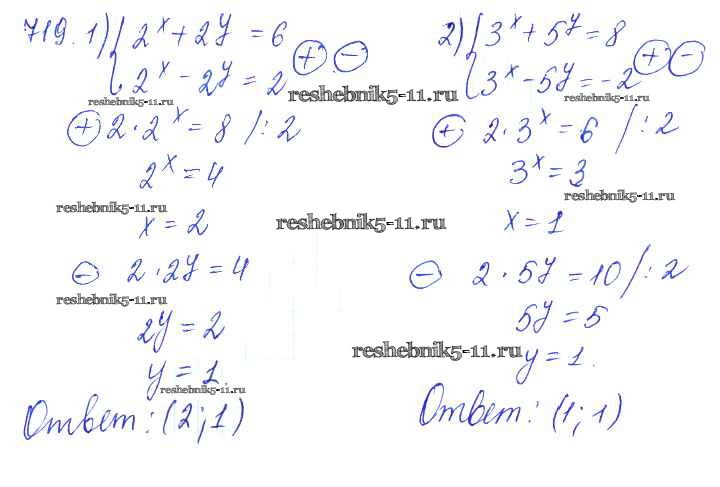 719. 1) { 2^x + 2^y = 6
2^x - 2^y = 2 (+) (-)
reshebnik5-11.ru
(+) 2 · 2^x = 8 /: 2
2^x = 4
reshebnik5-11.ru
x = 2
(-) 2 · 2^y = 4
reshebnik5-11.ru
2^y = 2
y = 1.
reshebnik5-11.ru
Ответ: (2; 1)
reshebnik5-11.ru
reshebnik5-11.ru
reshebnik5-11.ru
2) { 3^x + 5^y = 8
3^x - 5^y = -2 (+) (-)
reshebnik5-11.ru
(+) 2 · 3^x = 6 /: 2
3^x = 3
reshebnik5-11.ru
x = 1
(-) 2 · 5^y = 10 /: 2
5^y = 5
y = 1.
Ответ: (1; 1)